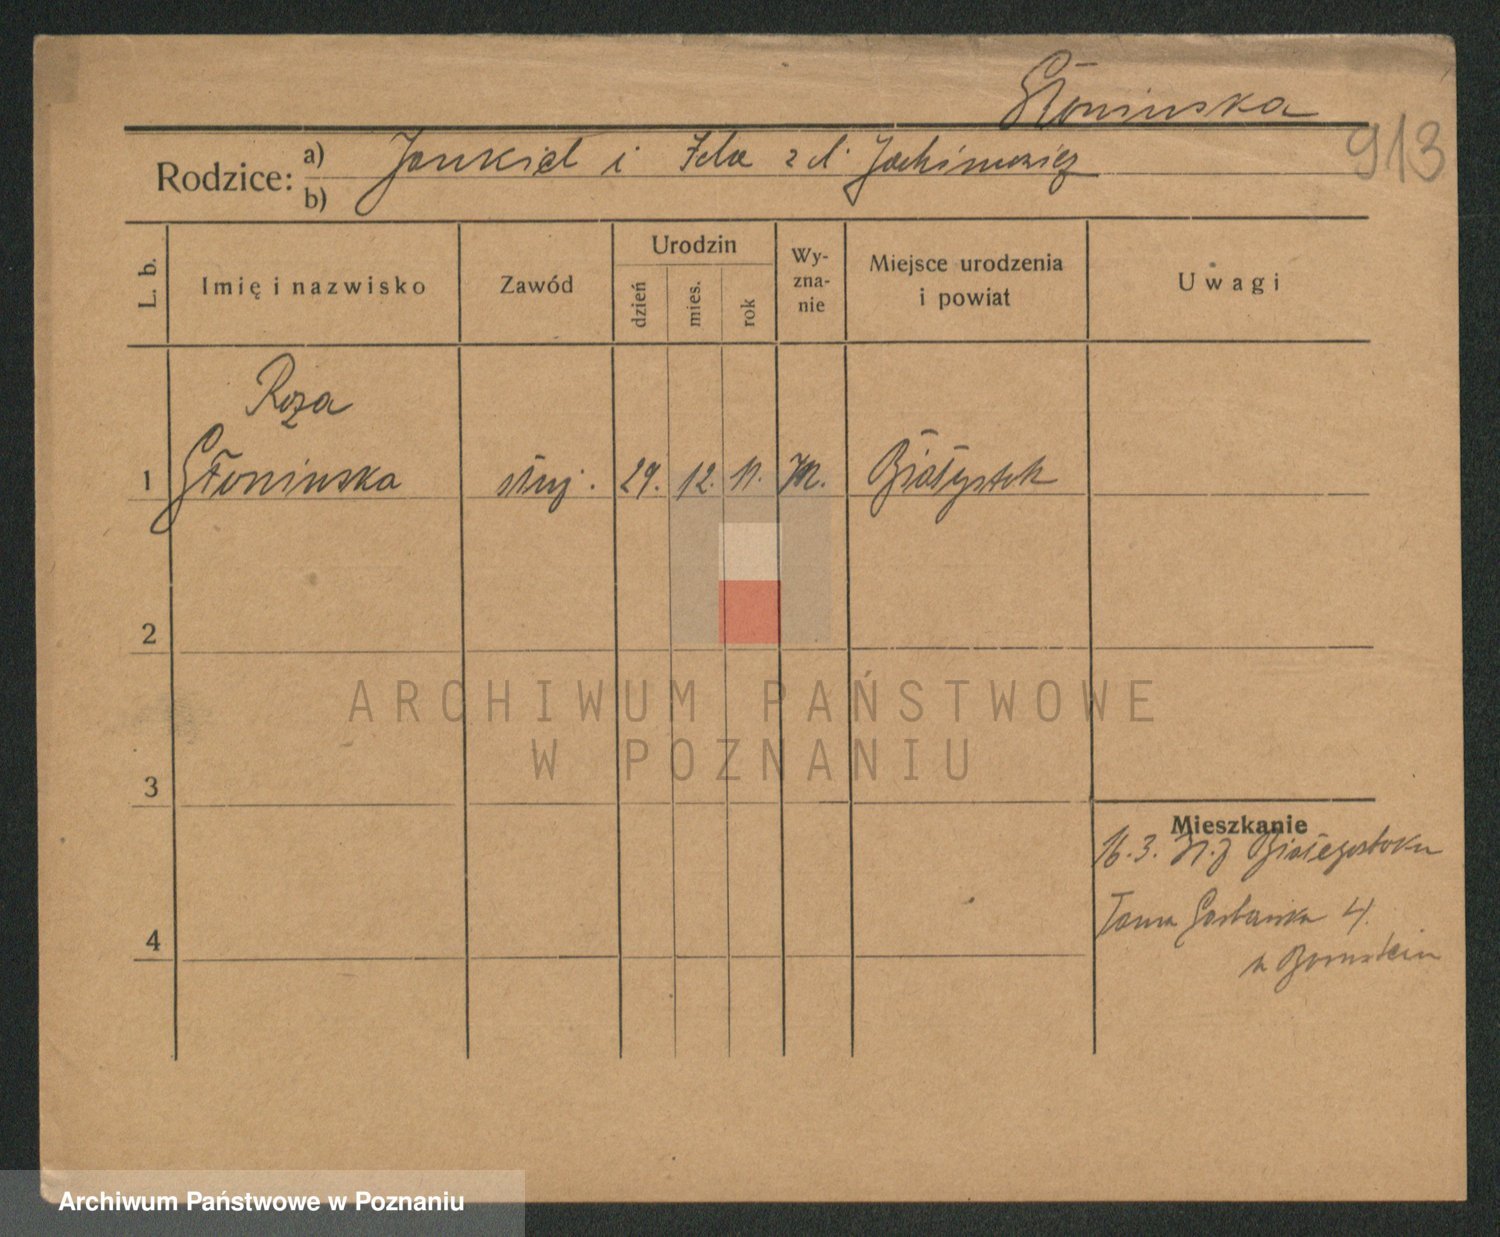 Słoninska
913
Rodzice: a) Jankiel i Fela z d. Jochimowicz
b)
L. b.
Imię i nazwisko
Zawód
Urodzin
dzień
mies.
rok
Wy-
zna-
nie
Miejsce urodzenia
i powiat
Uwagi
Roza
1 Słoninska służ. 29. 12. 11. M. Białystok
2
3
4
Mieszkanie
16.3. 31. z Białegostoku
Garbarska 4.
u Bornstein
ARCHIWUM PAŃSTWOWE
W POZNANIU
Archiwum Państwowe w Poznaniu